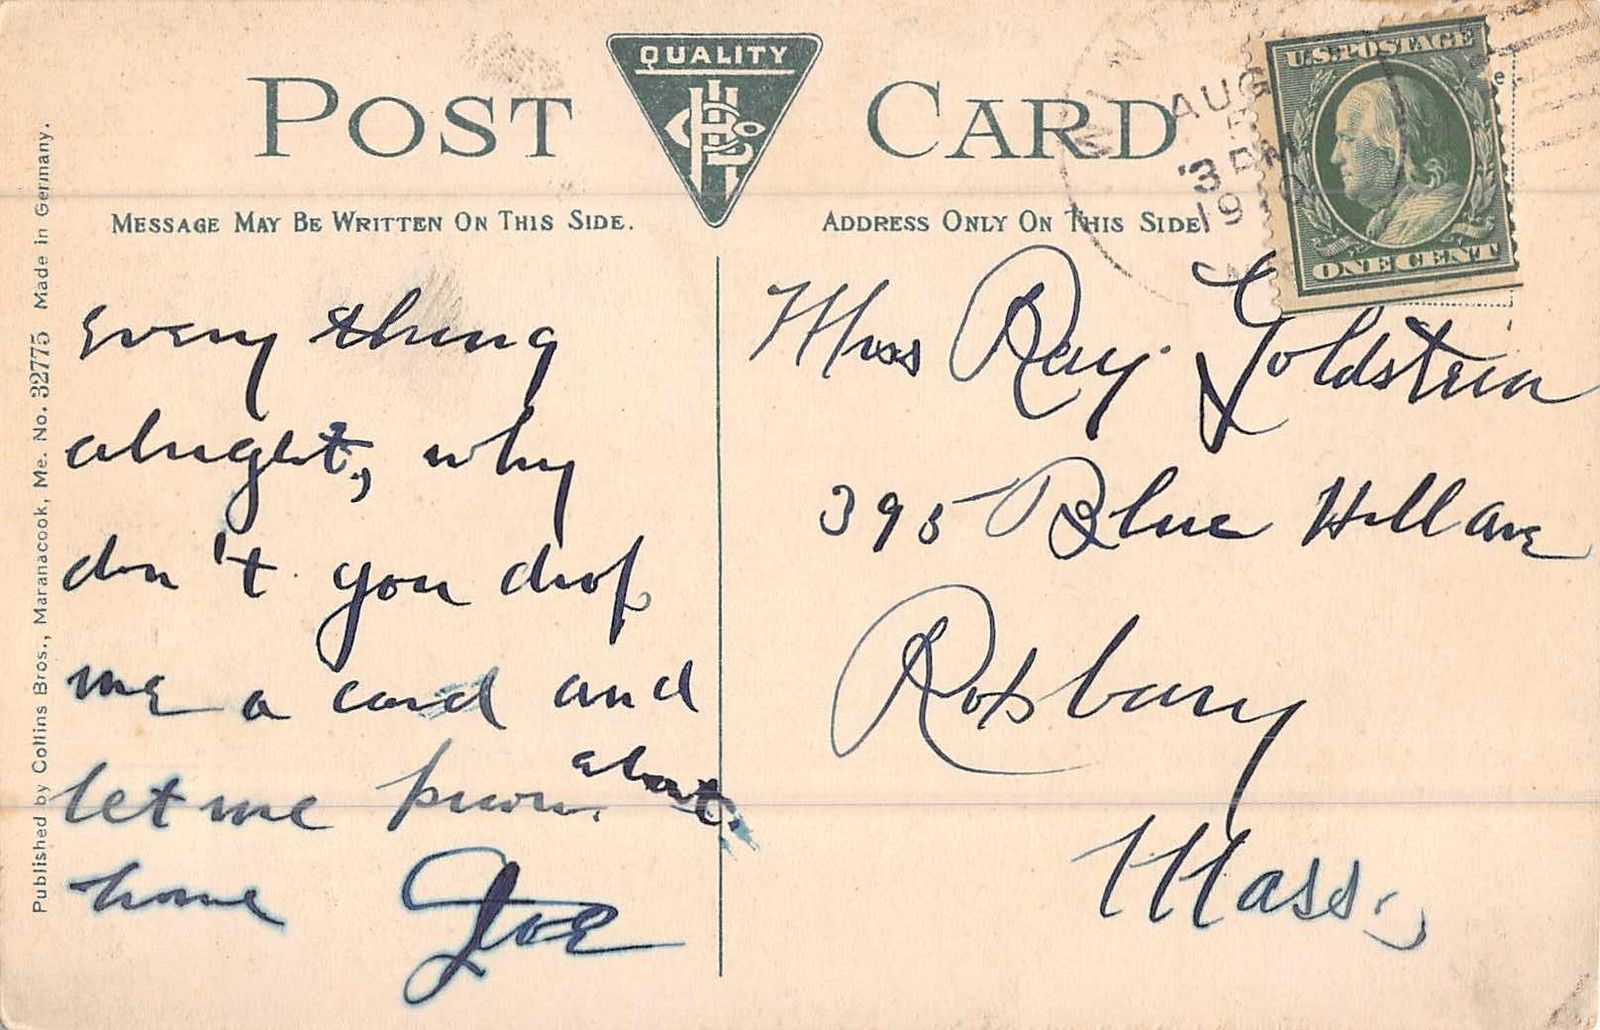 POST CARD
QUALITY
MESSAGE MAY BE WRITTEN ON THIS SIDE.
ADDRESS ONLY ON THIS SIDE
U.S. POSTAGE
ONE CENT
AUG
3 PM
19
Every thing
alright, why
don't you drop
me a card and
let me know about
home Joe
Miss Ray Goldstein
395 Blue Hill Ave
Roxbury
Mass.
Published by Collins Bros., Maranacook, Me. No. 32775 Made in Germany.